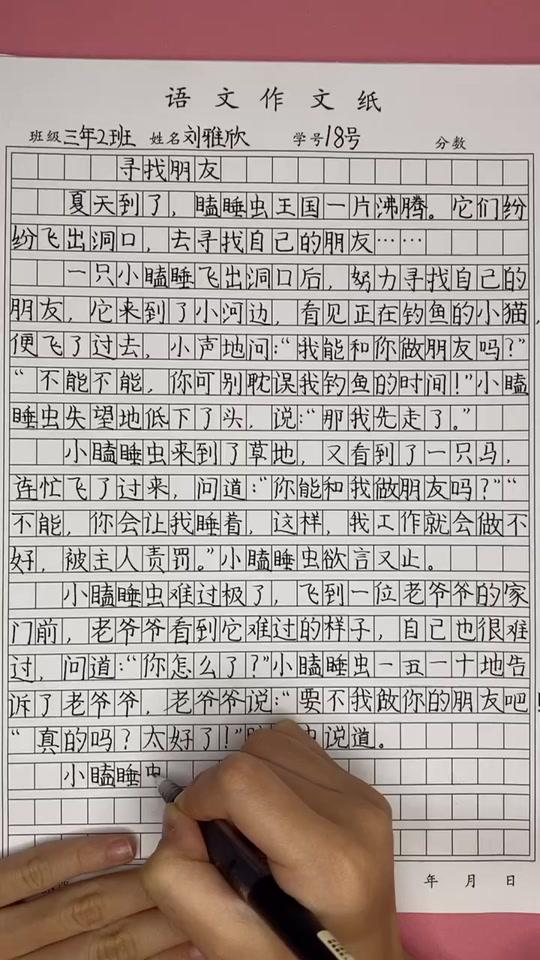 语文作文纸
班级三年2班 姓名刘雅欣 学号18号 分数
寻找朋友
夏天到了，瞌睡虫王国一片沸腾。它们纷
纷飞出洞口，去寻找自己的朋友……
一只小瞌睡飞出洞口后，努力寻找自己的
朋友，它来到了小河边，看见正在钓鱼的小猫，
便飞了过去，小声地问：“我能和你做朋友吗？”
“不能不能，你可别耽误我钓鱼的时间！”小瞌
睡虫失望地低下了头，说：“那我先走了。”
小瞌睡虫来到了草地，又看到了一只马，
连忙飞了过来，问道：“你能和我做朋友吗？”“
不能，你会让我睡着，这样，我工作就会做不
好，被主人责罚。”小瞌睡虫欲言又止。
小瞌睡虫难过极了，飞到一位老爷爷的家
门前，老爷爷看到它难过的样子，自己也很难
过，问道：“你怎么了？”小瞌睡虫一五一十地告
诉了老爷爷，老爷爷说：“要不我做你的朋友吧！
“真的吗？太好了！”虫说道。
小瞌睡虫
年 月 日